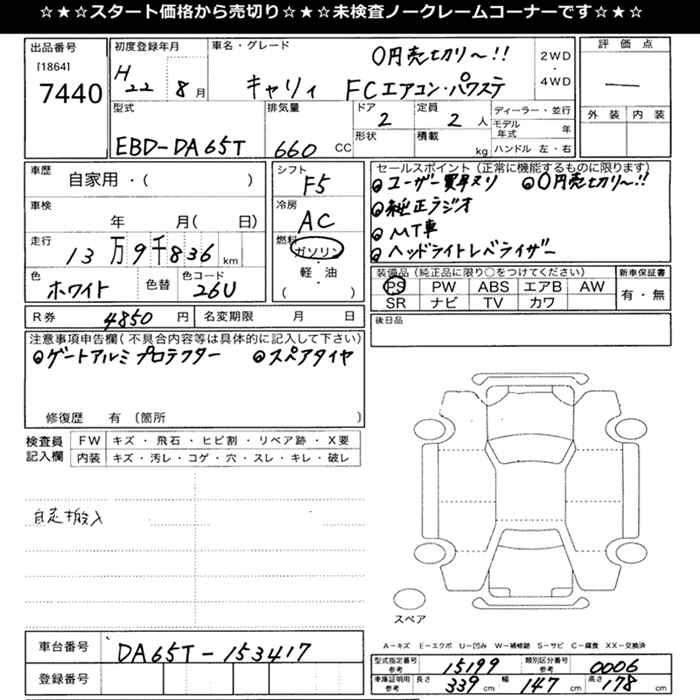 ☆★☆★スタート価格から売切り☆★☆★未検査ノークレームコーナーです☆★☆★
出品番号
[1864]
7440
初度登録年月
H22 8月
車名・グレード
0円売切リ〜!!
キャリィ FCエアコン・パワステ
2WD
・
4WD
評価点
—
外装 内装
型式
EBD-DA65T
排気量
660 CC
ドア
2
形状
定員
2 人
積載
kg
ディーラー・並行
モデル年式 年
ハンドル 左・右
車歴
自家用・( )
車検
年 月( 日)
走行
13万9千836km
色
ホワイト
色替
色コード
26U
シフト
F5
冷房
AC
燃料
ガソリン
・
軽油
( )
セールスポイント(正常に機能するものに限ります)
ユーザー買取リ 0円売切リ〜!!
純正ラジオ
MT車
ヘッドライトレベライザー
装備品(純正品に限り○をつけてください)
PS PW ABS エアB AW
SR ナビ TV カワ
新車保証書
有・無
R券 4850 円
名変期限 月 日
後日品
注意事項申告欄(不具合内容等は具体的に記入して下さい)
ゲートアルミプロテクター スペアタイヤ
修復歴 有 (箇所 )
検査員記入欄
FW キズ・飛石・ヒビ割・リペア跡・X要
内装 キズ・汚レ・コゲ・穴・スレ・キレ・破レ
自走搬入
スペア
車台番号 DA65T-153417
登録番号
A−キズ E−エクボ U−凹み W−補修跡 S−サビ C−腐食 XX−交換済
型式指定番号 参考 15199 類別区分番号 参考 0006
車庫証明用 参考 長さ 339 cm 幅 147 cm 高さ 178 cm